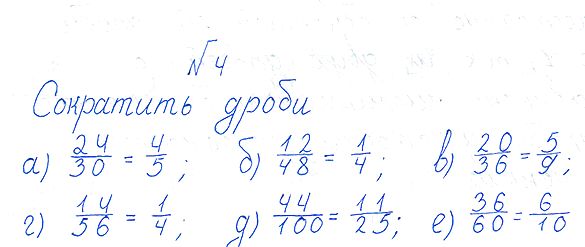 № 4
Сократить дроби
а) 24/30 = 4/5 ; б) 12/48 = 1/4 ; в) 20/36 = 5/9 ;
г) 14/56 = 1/4 ; д) 44/100 = 11/25 ; е) 36/60 = 6/10